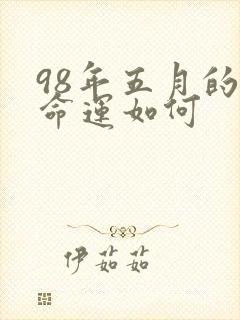 98年五月的
命運如何
伊茹茹